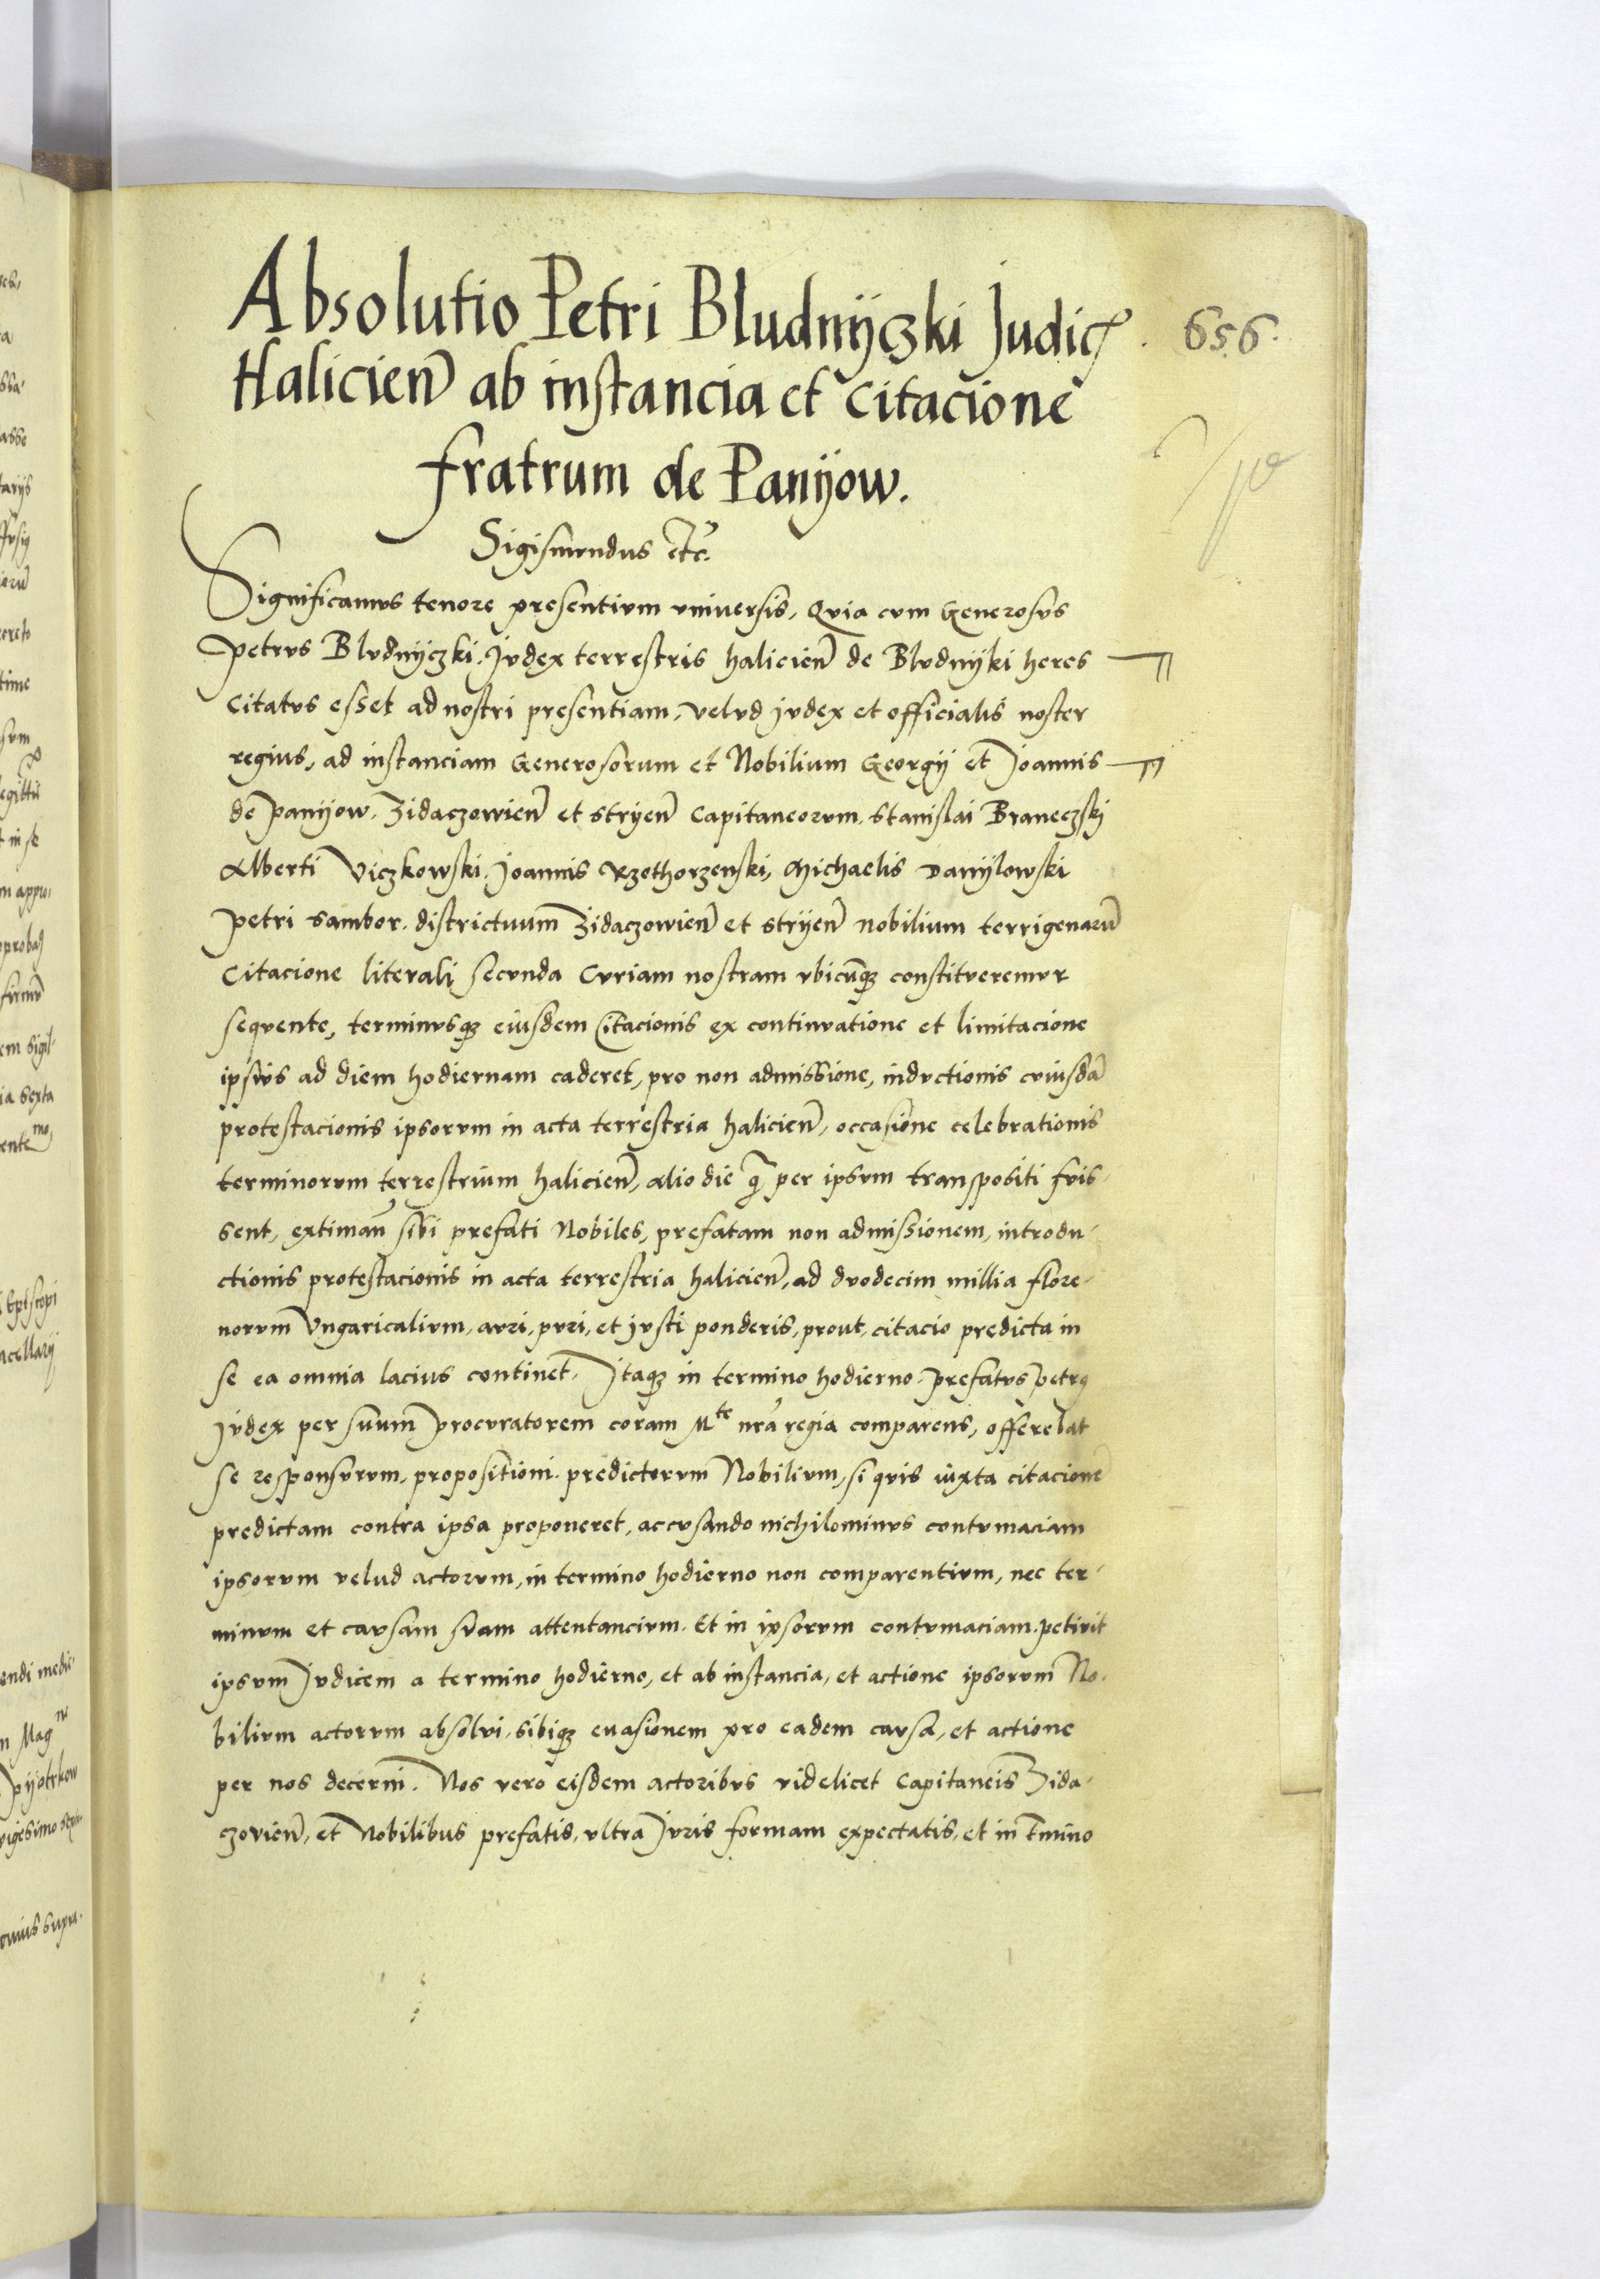 Absolutio Petri Bludnijczki Judic⁹ 656
Halicien̄ ab instancia et Citacione
fratrum de Panijow.
Sigismundus etc̄.
Significamus tenore presentium vniuersis, Quia cum Generosus
Petrus Bludnijczki Judex terrestris halicien̄ de Bludnijki heres
Citatus esset ad nostri presentiam, velud judex et officialis noster
regius, ad instanciam Generosorum et Nobilium Georgij et Joannis
de Panijow Zidaczowien̄ et strijen̄ Capitaneorum. Stanislai Braneczkj
Alberti Viczkowski Joannis Rzethorzenski, Michaelis Danijlowski
Petri Sambor. districtuum Zidaczowien̄ et strijen̄ nobilium terrigenarū
Citacione literali secunda Curiam nostram vbicūqz constitueremur
sequente, terminusqz eiusdem Citacionis ex continuatione et limitacione
ipsius ad diem hodiernam caderet, pro non admissione, inductionis cuiusdā
protestacionis ipsorum in acta terrestria halicien̄, occasione celebrationis
terminorum terrestrium halicien̄, alio die q̄ per ipsum transpositi fuis-
sent, extiman̄ sibi prefati Nobiles, prefatam non admissionem, introdu-
ctionis protestacionis in acta terrestria halicien̄, ad duodecim millia flore-
norum Vngaricalium, auri, puri, et justi ponderis, prout, citacio predicta in
se ea omnia lacius continet. Itaqz in termino hodierno prefatus petrꝰ
Judex per suum procuratorem coram Mte nrā regia comparens, offerebat
se responsurum, propositioni predictorum Nobilium, si quis iuxta citacionē
predictam contra ipsa proponeret, accusando nichilominus contumaciam
ipsorum velud actorum, in termino hodierno non comparentium, nec ter-
minum et causam suam attentancium. Et in ipsorum contumaciam petiuit
ipsum Judicem a termino hodierno, et ab instancia, et actione ipsorum No-
bilium actorum absolui, sibiqz euasionem pro eadem causa, et actione
per nos decerni. Nos vero eisdem actoribus videlicet Capitaneis Zida-
czovien̄, et Nobilibus prefatis, vltra Juris formam expectatis, et in t̄mino